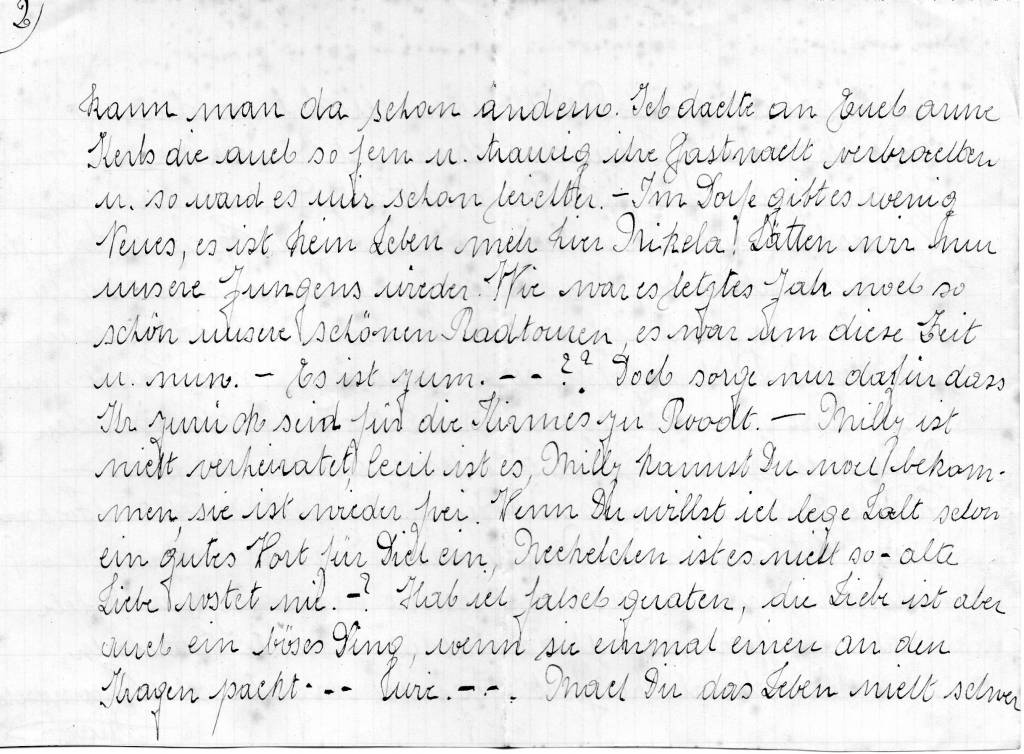 2)
kann man da schon ändern. Ich dachte an Euch arme
Kerls die auch so fern u. traurig ihre Fastnacht verbrachten
u. so ward es mir schon leichter. – Im Dorfe gibt es wenig
Neues, es ist kein Leben mehr hier Nikela! Hätten wir nur
unsere Jungens wieder. Wie war es letztes Jahr noch so
schön unsere schönen Radtouren, es war um diese Zeit
u. nun. – Es ist zum. - - - ? ? Doch sorge nur dafür dass
Ihr zurück seid für die Kirmes zu Roodt. – Milly ist
nicht verheiratet, Cecil ist es, Milly kannst Du noch bekom-
men, sie ist wieder frei. Wenn Du willst ich lege halt schon
ein gutes Wort für Dich ein, Nechelchen ist es nicht so - alte
Liebe rostet nie. - ? Hab ich falsch geraten, die Liebe ist aber
auch ein böses Ding, wenn sie einmal einen an den
Kragen packt - - - - -. Mach Dir das Leben nicht schwer